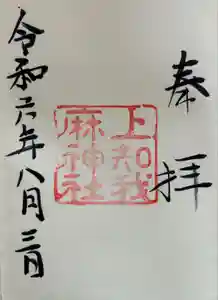 奉拝
上知我
麻神社
令和六年八月三日